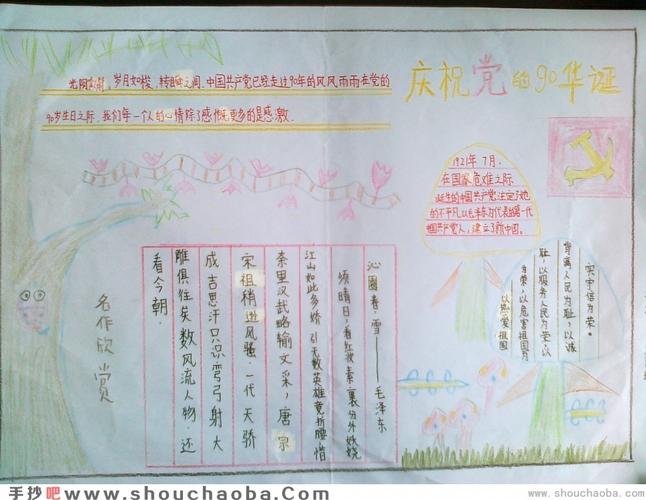 庆祝党的90华诞
光阴如箭，岁月如梭，转瞬之间，中国共产党已经走过90年的风风雨雨在党的
90岁生日之际，我们每一个人的心情除了感慨更多的是感激．
1921年7月，
在国家危难之际
诞生的中国共产党注定了她
的不平凡，以毛泽东为代表的第一代
中国共产党人，建立了新中国。
实守信为荣。
背离人民为耻，以诚
耻，以服务人民为荣，以
为荣，以危害祖国为
以热爱祖国
沁园春·雪——毛泽东
须晴日，看红装素裹分外妖娆
江山如此多娇引无数英雄竞折腰·惜
秦皇汉武略输文采，唐宗
宋祖稍逊风骚·一代天骄
成吉思汗只识弯弓射大
雕俱往矣数风流人物·还
看今朝．
名作欣赏
手抄吧www.shouchaoba.com
www.shouchaoba.com